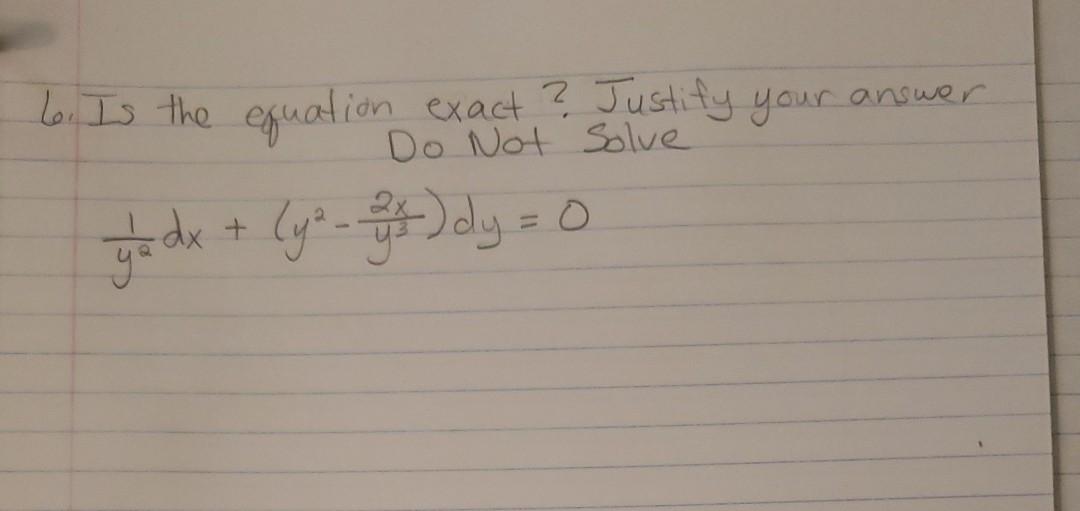 6. Is the equation exact? Justify your answer
Do Not Solve
1/y² dx + (y² - 2x/y³) dy = 0